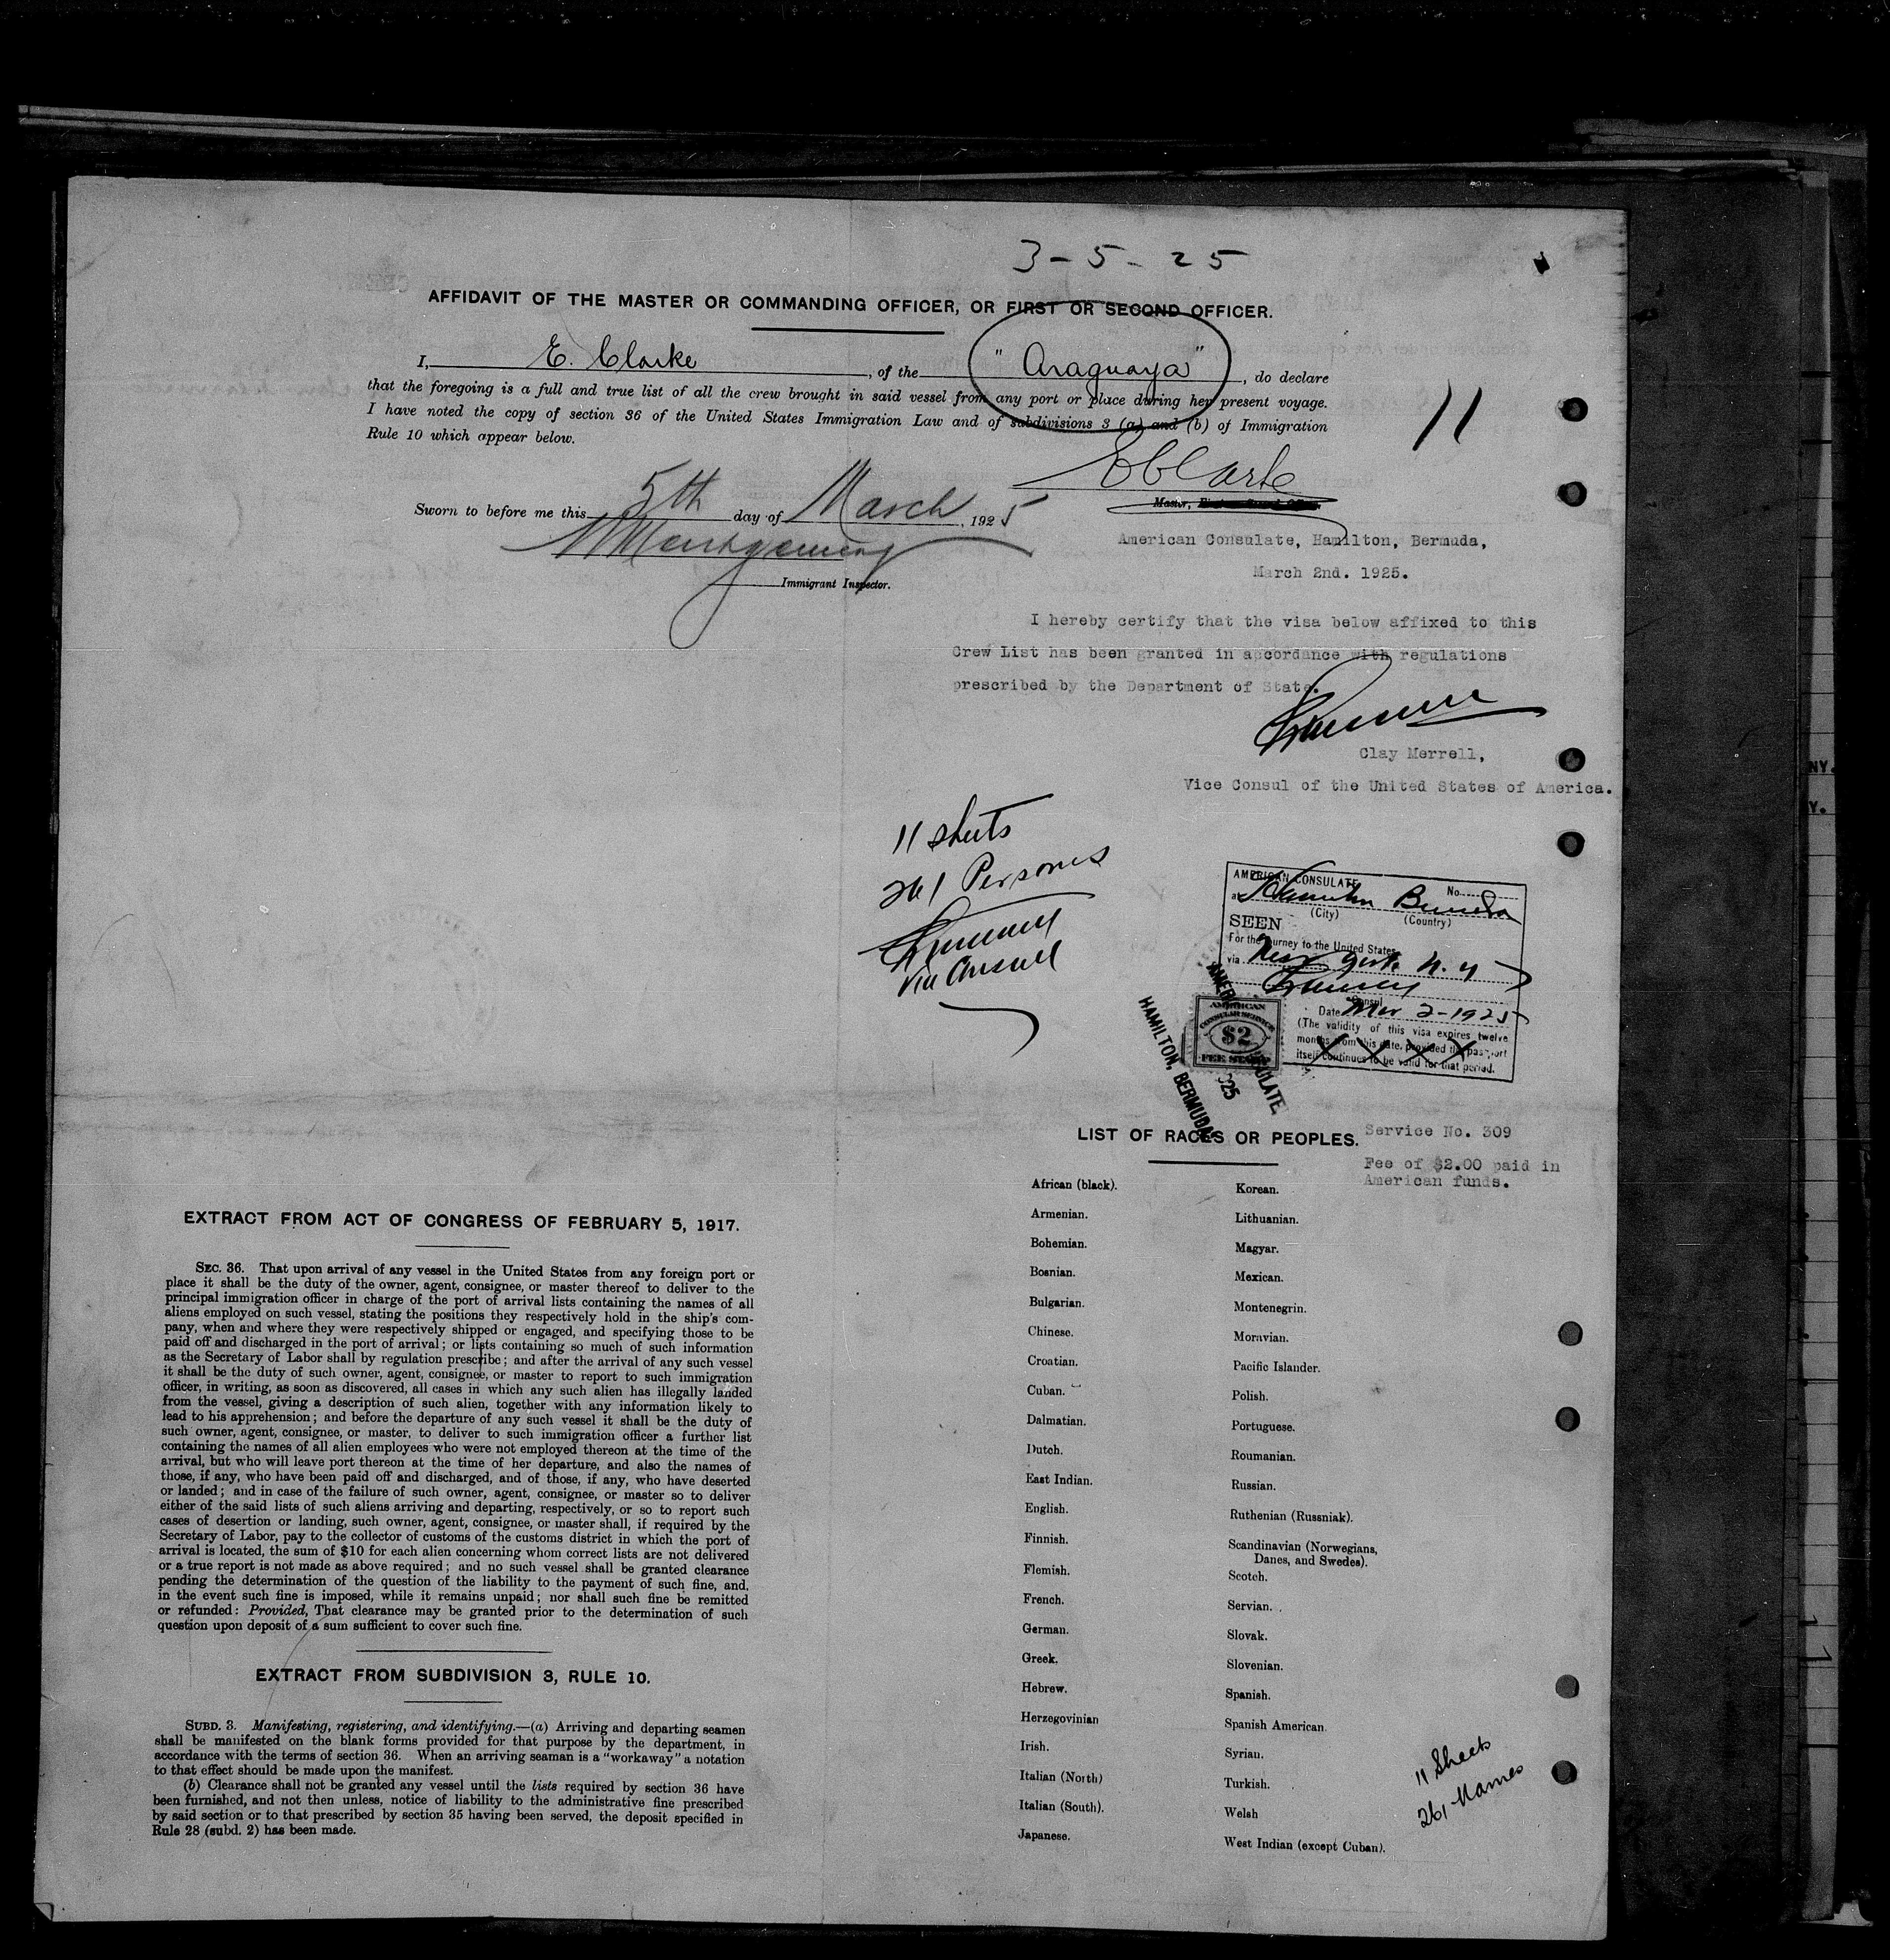 3-5-25
AFFIDAVIT OF THE MASTER OR COMMANDING OFFICER, OR FIRST OR SECOND OFFICER.
I, E. Clarke, of the "Araguaya", do declare
that the foregoing is a full and true list of all the crew brought in said vessel from any port or place during her present voyage.
I have noted the copy of section 36 of the United States Immigration Law and of subdivisions 3 (a) and (b) of Immigration
Rule 10 which appear below.
11
E Clarke
Master,
Sworn to before me this 5th day of March, 1925
Montgomery
Immigrant Inspector.
American Consulate, Hamilton, Bermuda,
March 2nd. 1925.
I hereby certify that the visa below affixed to this
Crew List has been granted in accordance with regulations
prescribed by the Department of State.
Clay Merrell,
Vice Consul of the United States of America.
11 sheets
261 Persons
Vice Consul
AMERICAN CONSULATE No.
at Hamilton Bermuda
(City) (Country)
SEEN
For the journey to the United States
via New York N. Y
Consul
Date Mar 2-1925
(The validity of this visa expires twelve
months from this date, provided the passport
itself continues to be valid for that period.
XXXX
AMERICAN
CONSULAR SERVICE
$2
FEE STAMP
AMERICAN CONSULATE
925
HAMILTON, BERMUDA
Service No. 309
Fee of $2.00 paid in
American funds.
EXTRACT FROM ACT OF CONGRESS OF FEBRUARY 5, 1917.
SEC. 36. That upon arrival of any vessel in the United States from any foreign port or
place it shall be the duty of the owner, agent, consignee, or master thereof to deliver to the
principal immigration officer in charge of the port of arrival lists containing the names of all
aliens employed on such vessel, stating the positions they respectively hold in the ship's com-
pany, when and where they were respectively shipped or engaged, and specifying those to be
paid off and discharged in the port of arrival; or lists containing so much of such information
as the Secretary of Labor shall by regulation prescribe; and after the arrival of any such vessel
it shall be the duty of such owner, agent, consignee, or master to report to such immigration
officer, in writing, as soon as discovered, all cases in which any such alien has illegally landed
from the vessel, giving a description of such alien, together with any information likely to
lead to his apprehension; and before the departure of any such vessel it shall be the duty of
such owner, agent, consignee, or master, to deliver to such immigration officer a further list
containing the names of all alien employees who were not employed thereon at the time of the
arrival, but who will leave port thereon at the time of her departure, and also the names of
those, if any, who have been paid off and discharged, and of those, if any, who have deserted
or landed; and in case of the failure of such owner, agent, consignee, or master so to deliver
either of the said lists of such aliens arriving and departing, respectively, or so to report such
cases of desertion or landing, such owner, agent, consignee, or master shall, if required by the
Secretary of Labor, pay to the collector of customs of the customs district in which the port of
arrival is located, the sum of $10 for each alien concerning whom correct lists are not delivered
or a true report is not made as above required; and no such vessel shall be granted clearance
pending the determination of the question of the liability to the payment of such fine, and,
in the event such fine is imposed, while it remains unpaid; nor shall such fine be remitted
or refunded: Provided, That clearance may be granted prior to the determination of such
question upon deposit of a sum sufficient to cover such fine.
EXTRACT FROM SUBDIVISION 3, RULE 10.
SUBD. 3. Manifesting, registering, and identifying.—(a) Arriving and departing seamen
shall be manifested on the blank forms provided for that purpose by the department, in
accordance with the terms of section 36. When an arriving seaman is a "workaway" a notation
to that effect should be made upon the manifest.
(b) Clearance shall not be granted any vessel until the lists required by section 36 have
been furnished, and not then unless, notice of liability to the administrative fine prescribed
by said section or to that prescribed by section 35 having been served, the deposit specified in
Rule 28 (subd. 2) has been made.
LIST OF RACES OR PEOPLES.
African (black).
Armenian.
Bohemian.
Bosnian.
Bulgarian.
Chinese.
Croatian.
Cuban.
Dalmatian.
Dutch.
East Indian.
English.
Finnish.
Flemish.
French.
German.
Greek.
Hebrew.
Herzegovinian
Irish.
Italian (North)
Italian (South).
Japanese.
Korean.
Lithuanian.
Magyar.
Mexican.
Montenegrin.
Moravian.
Pacific Islander.
Polish.
Portuguese.
Roumanian.
Russian.
Ruthenian (Russniak).
Scandinavian (Norwegians,
Danes, and Swedes).
Scotch.
Servian.
Slovak.
Slovenian.
Spanish.
Spanish American.
Syrian.
Turkish.
Welsh
West Indian (except Cuban).
11 Sheets
261 Names
NY.
Y.